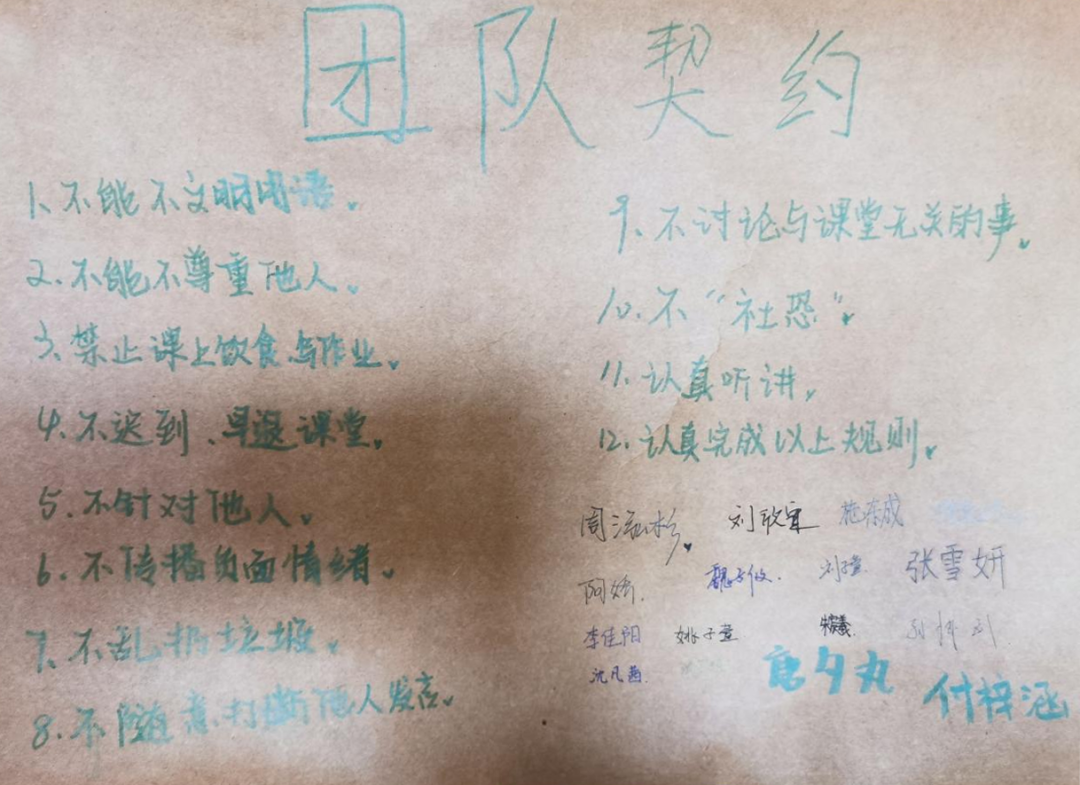 团队契约
1、不能不文明用语。
2、不能不尊重他人。
3、禁止课上饮食、写作业。
4、不迟到、早退课堂。
5、不针对他人。
6、不传播负面情绪。
7、不乱扔垃圾。
8、不随意打断他人发言。
9、不讨论与课堂无关的事。
10、不“社恐”。
11、认真听讲。
12、认真完成以上规则。
周 杉
刘 施东成
阿娇.
刘子萱
张雪妍
李佳阳 姚子萱
沈凡茜
唐夕丸
付梓涵